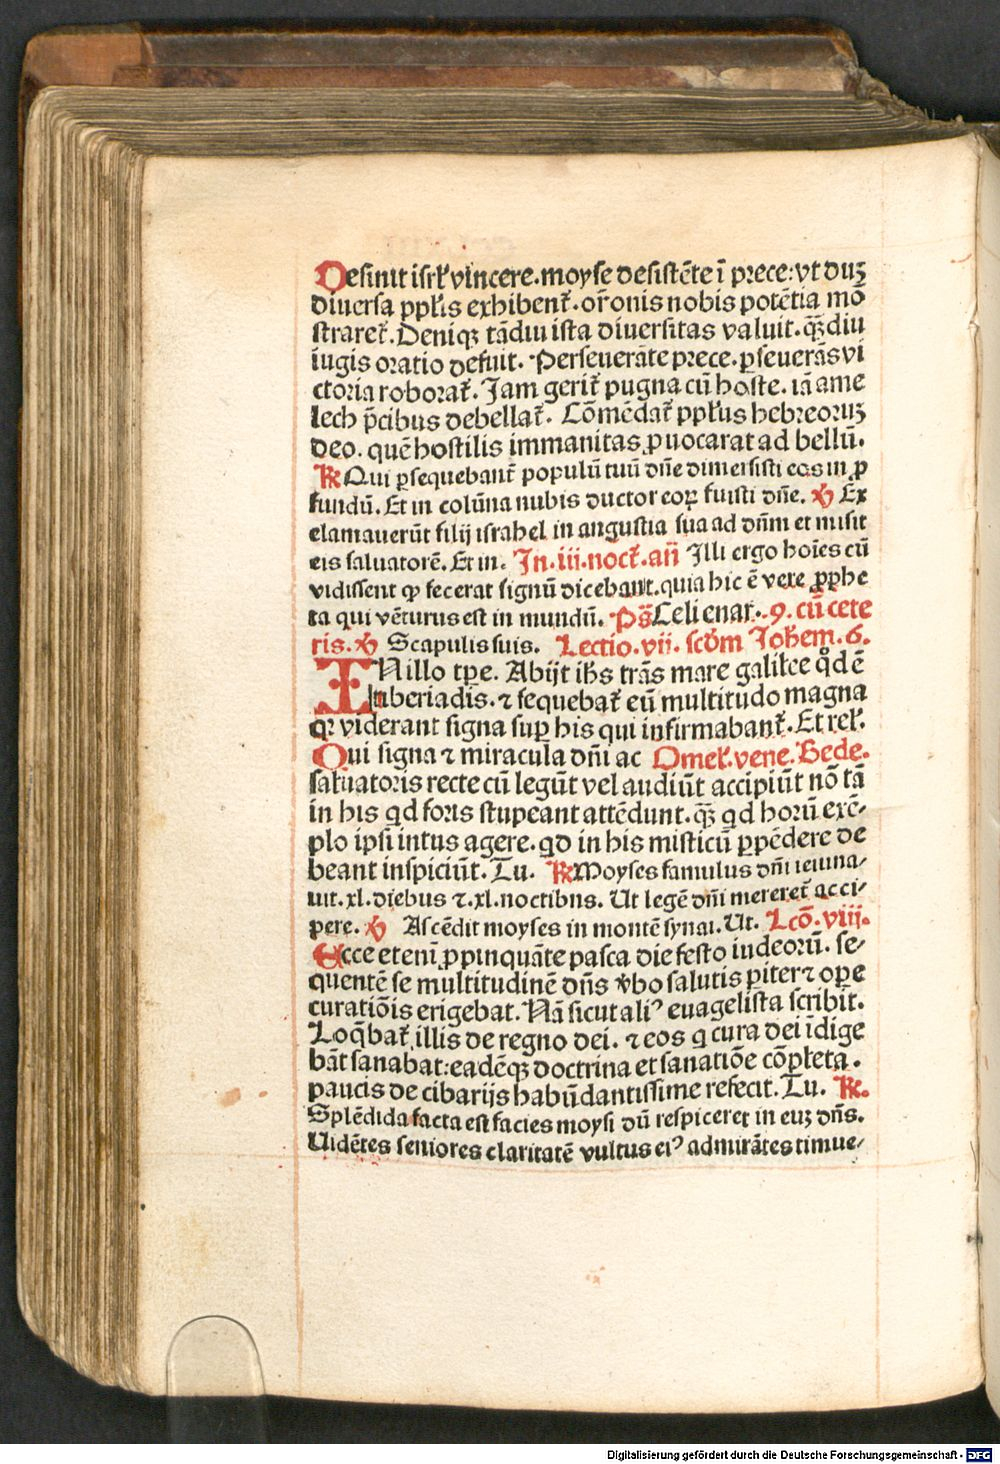 Desinit isrl̄ vincere. moyse desistēte ī prece: vt duꝫ
diuersa ppl̄is exhibent̄. or̄onis nobis potētia mō
straret̄. Deniqꝫ tādiu ista diuersitas valuit. qꝫ̄diu
iugis oratio defuit. Perseuerāte prece. ꝑseuerās vi
ctoria roborat̄. Jam gerit̄ pugna cū hoste. iā ame
lech p̄cibus debellat̄. Cōmēdat̄ ppl̄us hebreoruꝫ
deo. quē hostilis immanitas ꝓuocarat ad bellū.
℟ Qui ꝑsequebant̄ populū tuū dn̄e dimersisti eos in ꝓ
fundū. Et in colūna nubis ductor eoꝝ fuisti dn̄e. ℣ Ex
clamauerūt filij israhel in angustia sua ad dn̄m et misit
eis saluatorē. Et in. In .iii. noct̄. an̄ Illi ergo hoīes cū
vidissent ꝙ fecerat signū dicebant. quia hic ē vere ꝓphe
ta qui vēturus est in mundū. Ps̄ Celi enar. .9. cū cete
ris. ℣ Scapulis suis. Lectio .vii. scd̄m Joh̄em. 6.
IN illo tꝑe. Abijt ih̄s trās mare galilee qd̊ ē
tiberiadis. ⁊ sequebat̄ eū multitudo magna
qꝛ viderant signa suꝑ his qui infirmabant̄. Et rel̄.
Qui signa ⁊ miracula dn̄i ac Omel̄. vene. Bede.
saluatoris recte cū legūt vel audiūt accipiūt nō tā
in his qd foris stupeant attēdunt. qꝫ̄ qd horū exē-
plo ipsi intus agere. qd in his misticū ꝑpēdere de
beant inspiciūt. Tu. ℟ Moyses famulus dn̄i ieiuna-
uit .xl. diebus ⁊ .xl. noctibus. Ut legē dn̄i mereret̄ acci-
pere. ℣ Ascēdit moyses in montē synai. Ut. Lcō. viii.
Ecce etenī ꝓpinquāte pasca die festo iudeorū. se-
quentē se multitudinē dn̄s v̄bo salutis ꝑiter ⁊ oꝑe
curatiōis erigebat. Nā sicut aliꝰ euāgelista scribit.
Loq̄bat̄ illis de regno dei. ⁊ eos q cura dei īdige
bāt sanabat: eadēqꝫ doctrina et sanatiōe cōpleta.
paucis de cibarijs habūdantissime refecit. Tu. ℟.
Splēdida facta est facies moysi dū respiceret in euꝫ dn̄s.
Uidētes seniores claritatē vultus eiꝰ admirātes timue-
Digitalisierung gefördert durch die Deutsche Forschungsgemeinschaft - DFG